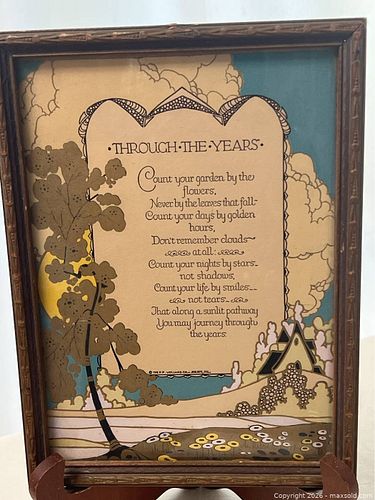 ·THROUGH·THE·YEARS·
Count your garden by the
flowers,
Never by the leaves that fall-
Count your days by golden
hours,
Don't remember clouds-
at all:
Count your nights by stars-
not shadows,
Count your life by smiles--
not tears-
That along a sunlit pathway
You may journey through
the years:
Copyright 2026 - maxsold.com